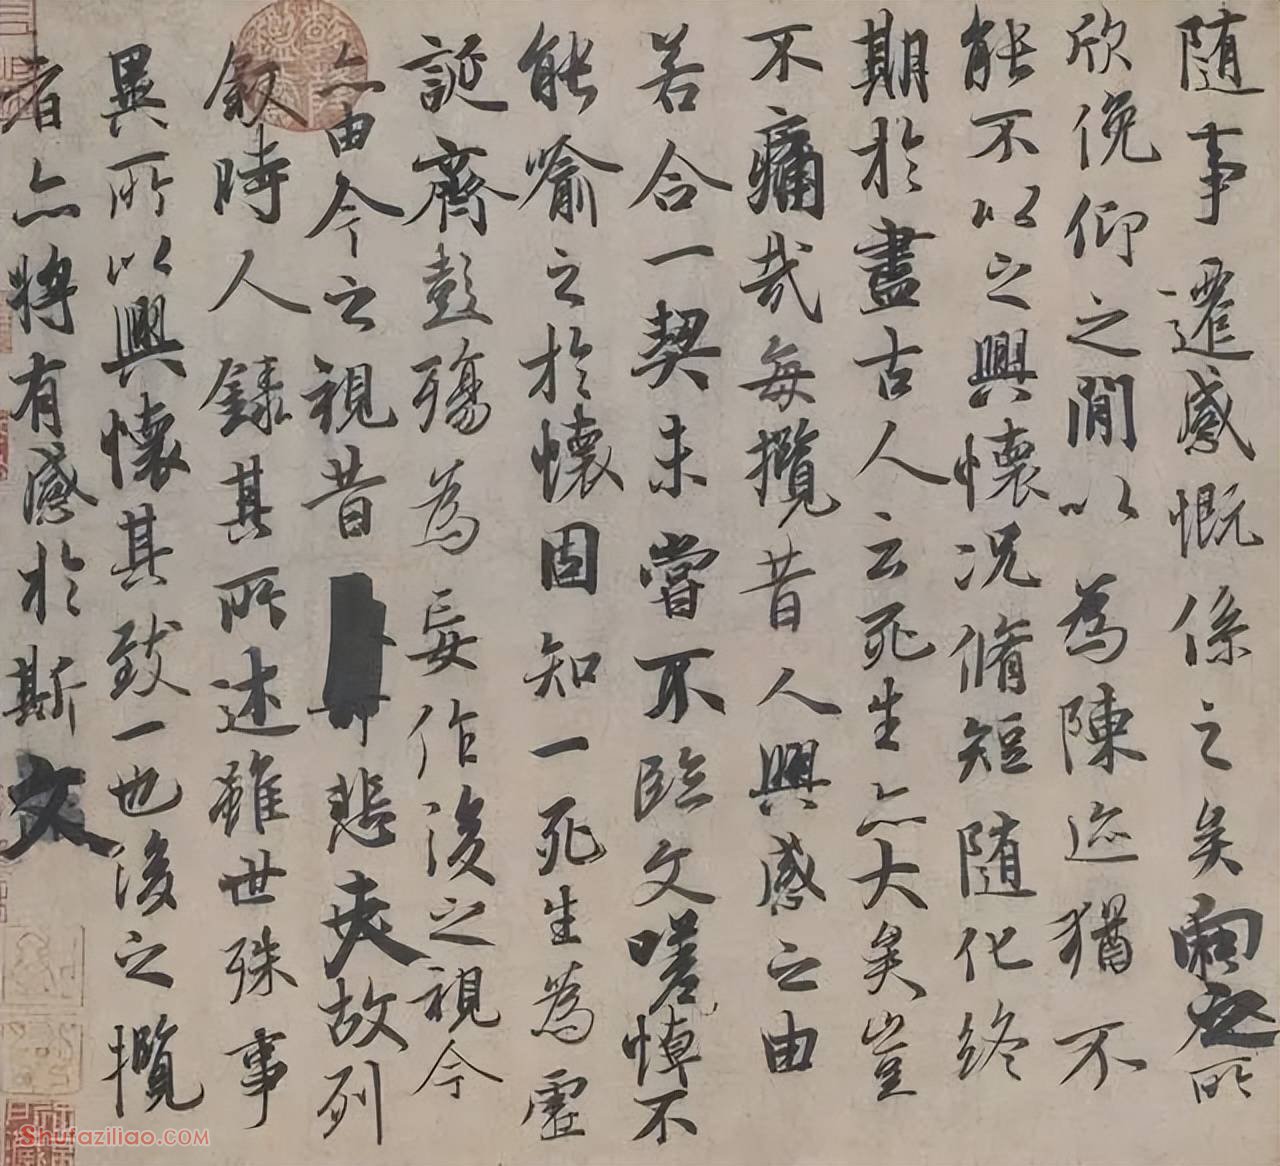 随事遷感慨係之矣向之所
欣俛仰之閒以為陳迹猶不
能不以之興懷況脩短随化終
期於盡古人云死生亦大矣豈
不痛哉每攬昔人興感之由
若合一契未嘗不臨文嗟悼不
能喻之於懷固知一死生為虛
誕齊彭殤為妄作後之視今
亦由今之視昔悲夫故列
敘時人錄其所述雖世殊事
異所以興懷其致一也後之攬
者亦將有感於斯文
Shufaziliao.COM